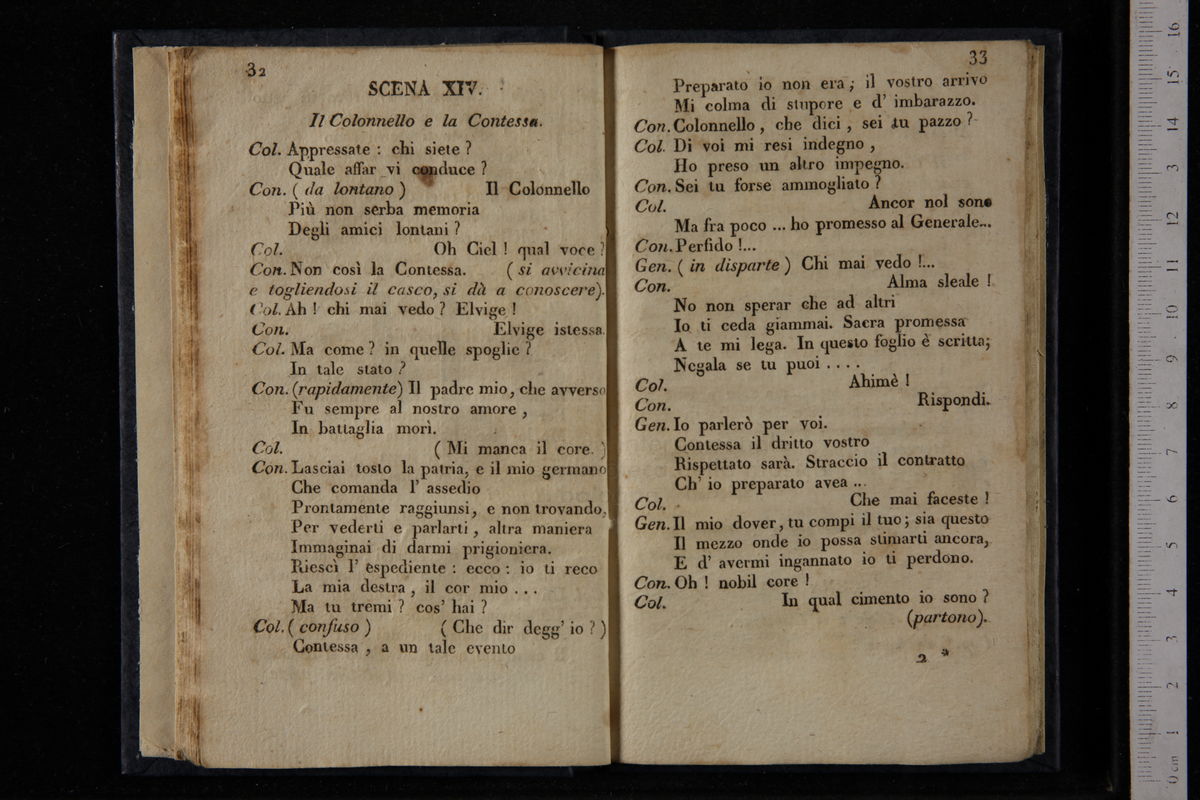 32
SCENA XIV.
Il Colonnello e la Contessa.
Col. Appressate : chi siete ?
Quale affar vi conduce ?
Con. ( da lontano ) Il Colonnello
Più non serba memoria
Degli amici lontani ?
Col. Oh Ciel ! qual voce ?
Con. Non così la Contessa. ( si avvicina
e togliendosi il casco, si dà a conoscere).
Col. Ah ! chi mai vedo ? Elvige !
Con. Elvige istessa.
Col. Ma come ? in quelle spoglie ?
In tale stato ?
Con. (rapidamente) Il padre mio, che avverso
Fu sempre al nostro amore ,
In battaglia morì.
Col. ( Mi manca il core. )
Con. Lasciai tosto la patria, e il mio germano
Che comanda l' assedio
Prontamente raggiunsi, e non trovando,
Per vederti e parlarti , altra maniera
Immaginai di darmi prigioniera.
Riescì l' espediente : ecco : io ti reco
La mia destra , il cor mio . . .
Ma tu tremi ? cos' hai ?
Col. ( confuso ) ( Che dir degg' io ? )
Contessa , a un tale evento
33
Preparato io non era ; il vostro arrivo
Mi colma di stupore e d' imbarazzo.
Con. Colonnello , che dici , sei tu pazzo ?
Col. Di voi mi resi indegno ,
Ho preso un altro impegno.
Con. Sei tu forse ammogliato ?
Col. Ancor nol sono
Ma fra poco ... ho promesso al Generale...
Con. Perfido !...
Gen. ( in disparte ) Chi mai vedo !...
Con. Alma sleale !
No non sperar che ad altri
Io ti ceda giammai. Sacra promessa
A te mi lega. In questo foglio è scritta;
Negala se tu puoi . . . .
Col. Ahimè !
Con. Rispondi.
Gen. Io parlerò per voi.
Contessa il dritto vostro
Rispettato sarà. Straccio il contratto
Ch' io preparato avea ...
Col. Che mai faceste !
Gen. Il mio dover, tu compi il tuo ; sia questo
Il mezzo onde io possa stimarti ancora,
E d' avermi ingannato io ti perdono.
Con. Oh ! nobil core !
Col. In qual cimento io sono ?
(partono).
2 *
0 cm 1 2 3 4 5 6 7 8 9 10 11 12 13 14 15 16